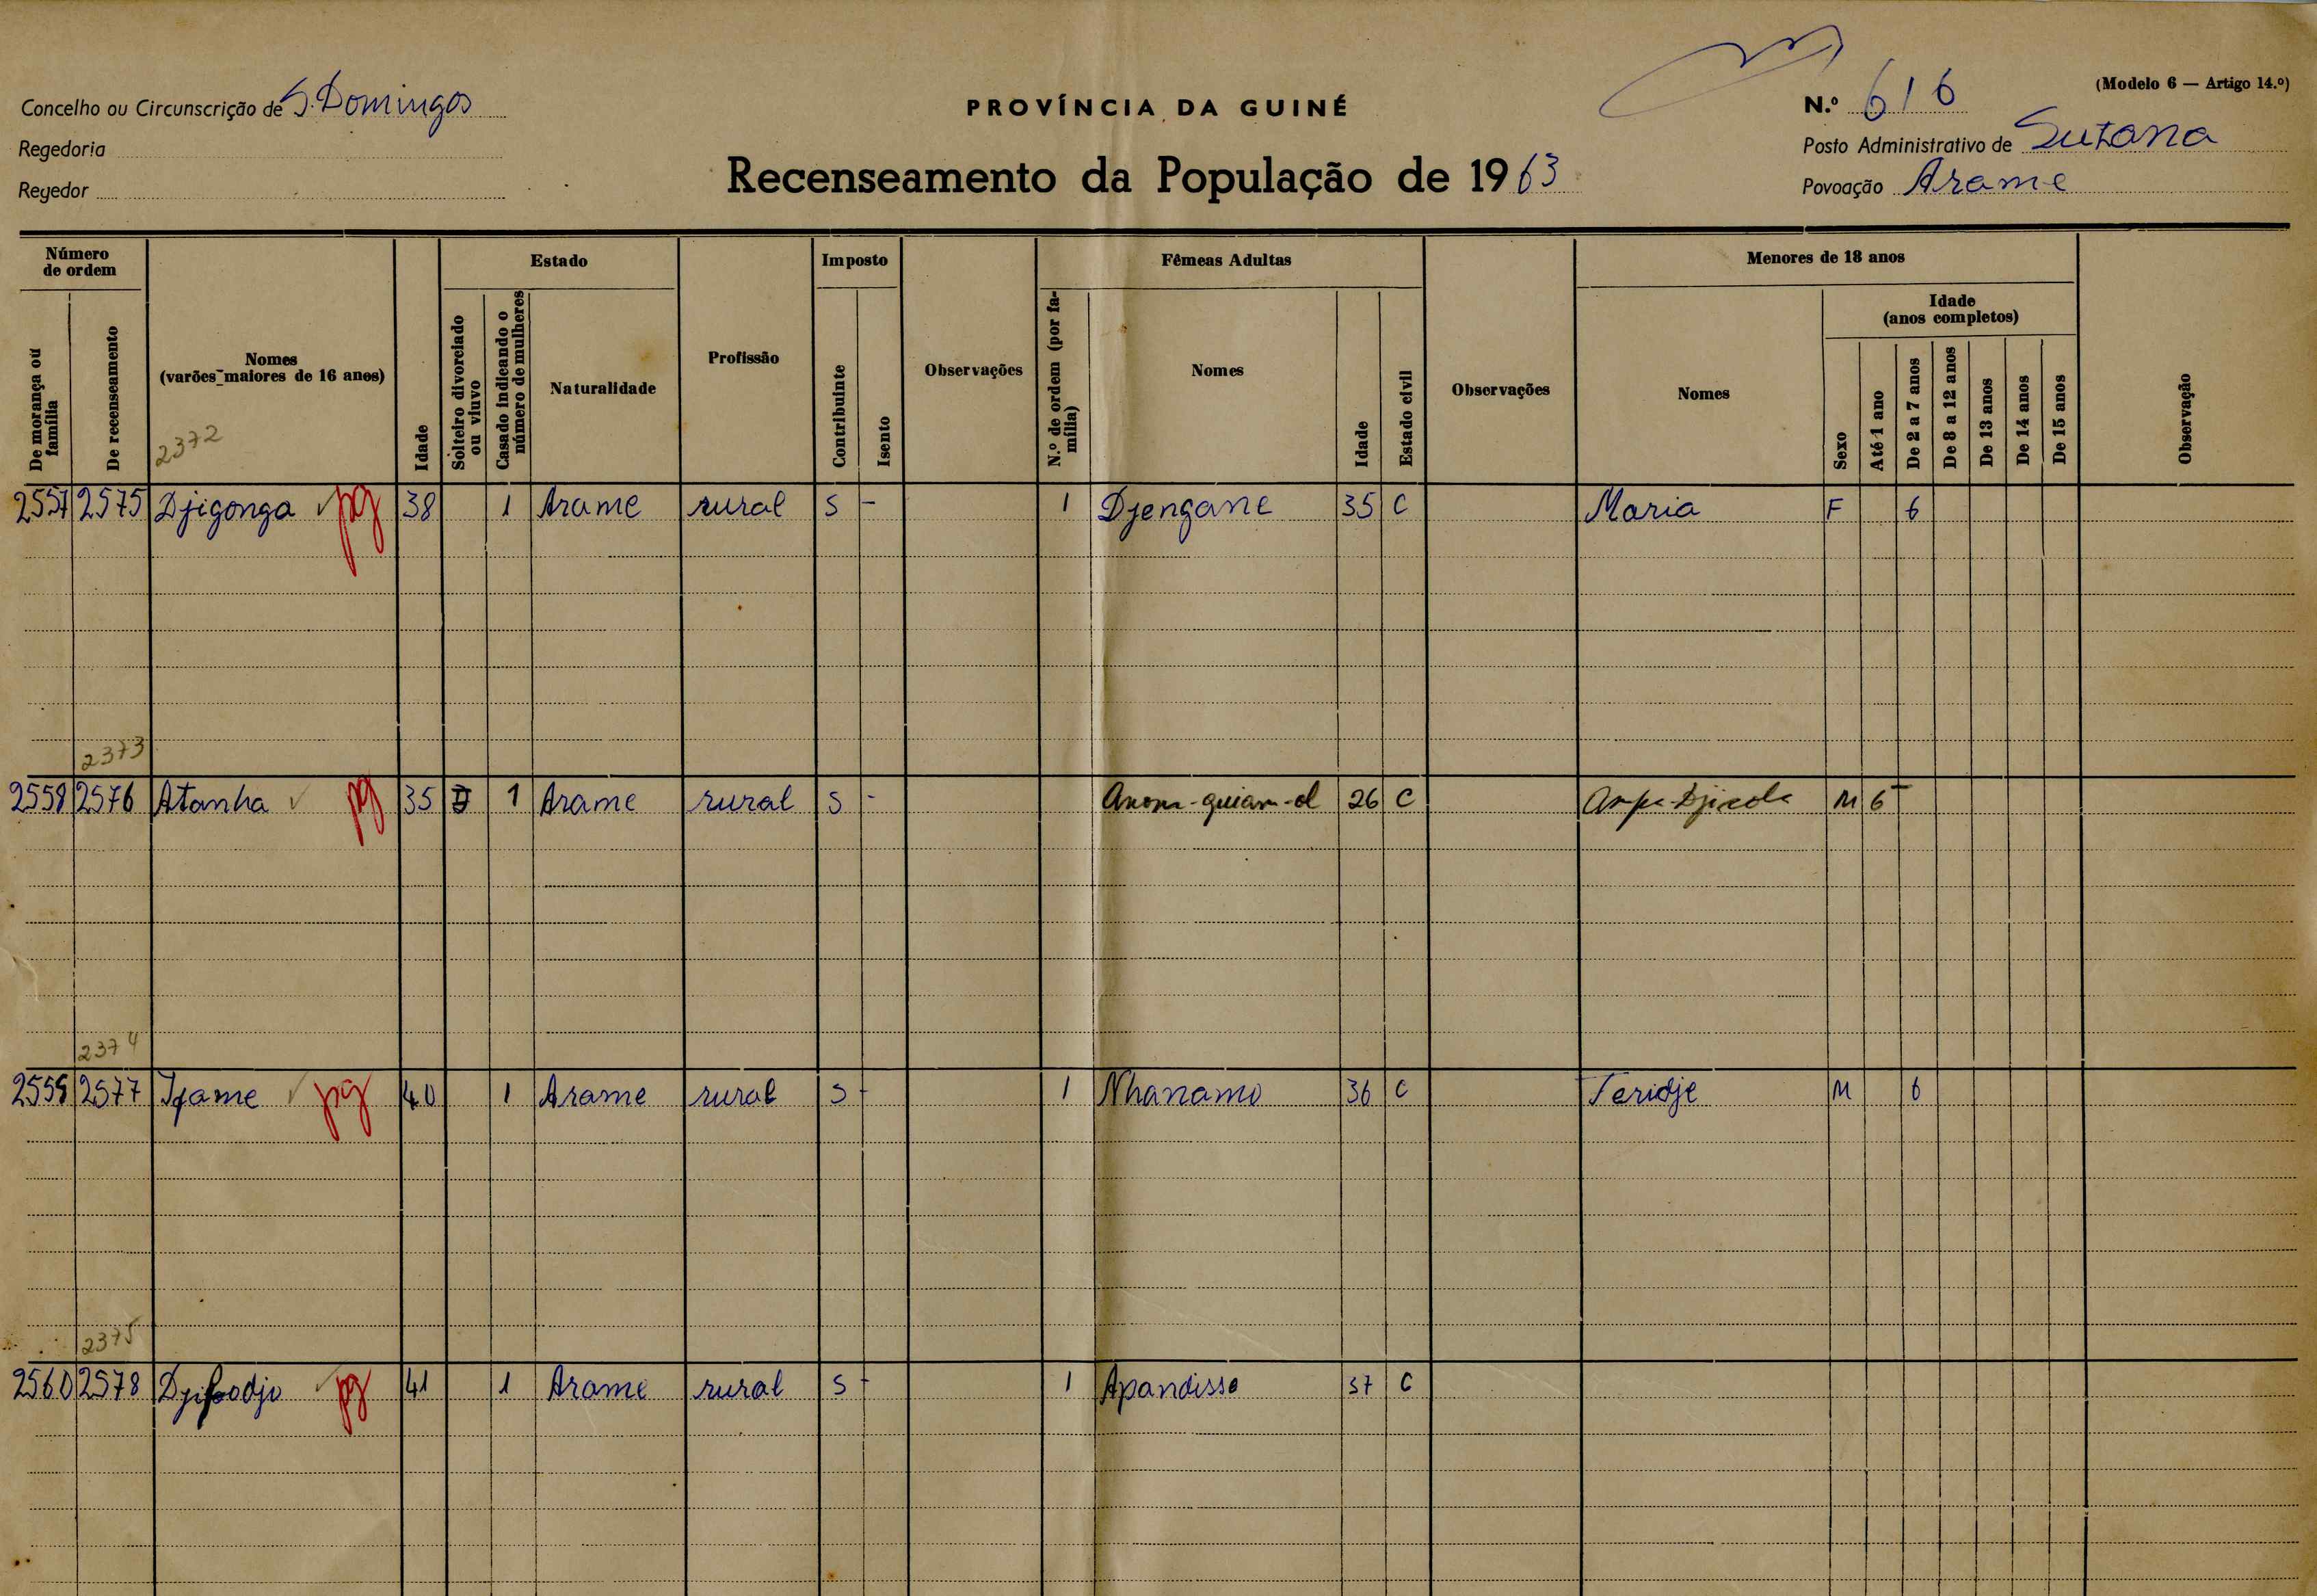 (Modelo 6 — Artigo 14.º)
Concelho ou Circunscrição de S. Domingos
PROVÍNCIA DA GUINÉ
N.º 616
Regedoria
Posto Administrativo de Suzana
Regedor
Recenseamento da População de 1963
Povoação Arame
Número de ordem
Estado
Imposto
Fêmeas Adultas
Menores de 18 anos
De morança ou família
De recenseamento
Nomes
(varões maiores de 16 anos)
2372
Idade
Solteiro divorciado ou viuvo
Casado indicando o número de mulheres
Naturalidade
Profissão
Contribuinte
Isento
Observações
N.º de ordem (por família)
Nomes
Idade
Estado civil
Observações
Nomes
Sexo
Idade
(anos completos)
Até 1 ano
De 2 a 7 anos
De 8 a 12 anos
De 13 anos
De 14 anos
De 15 anos
Observação
2557 2575 Djigonga pg 38 1 Arame rural S - 1 Djengane 35 C Maria F 6
2373
2558 2576 Atanha pg 35 1 Arame rural S - 26 C M 6
2374
2559 2577 pg 40 1 Arame rural S - 1 Nhanamo 36 C Teridje M 6
2375
2560 2578 pg 41 1 Arame rural S - 1 Apandisso 37 C